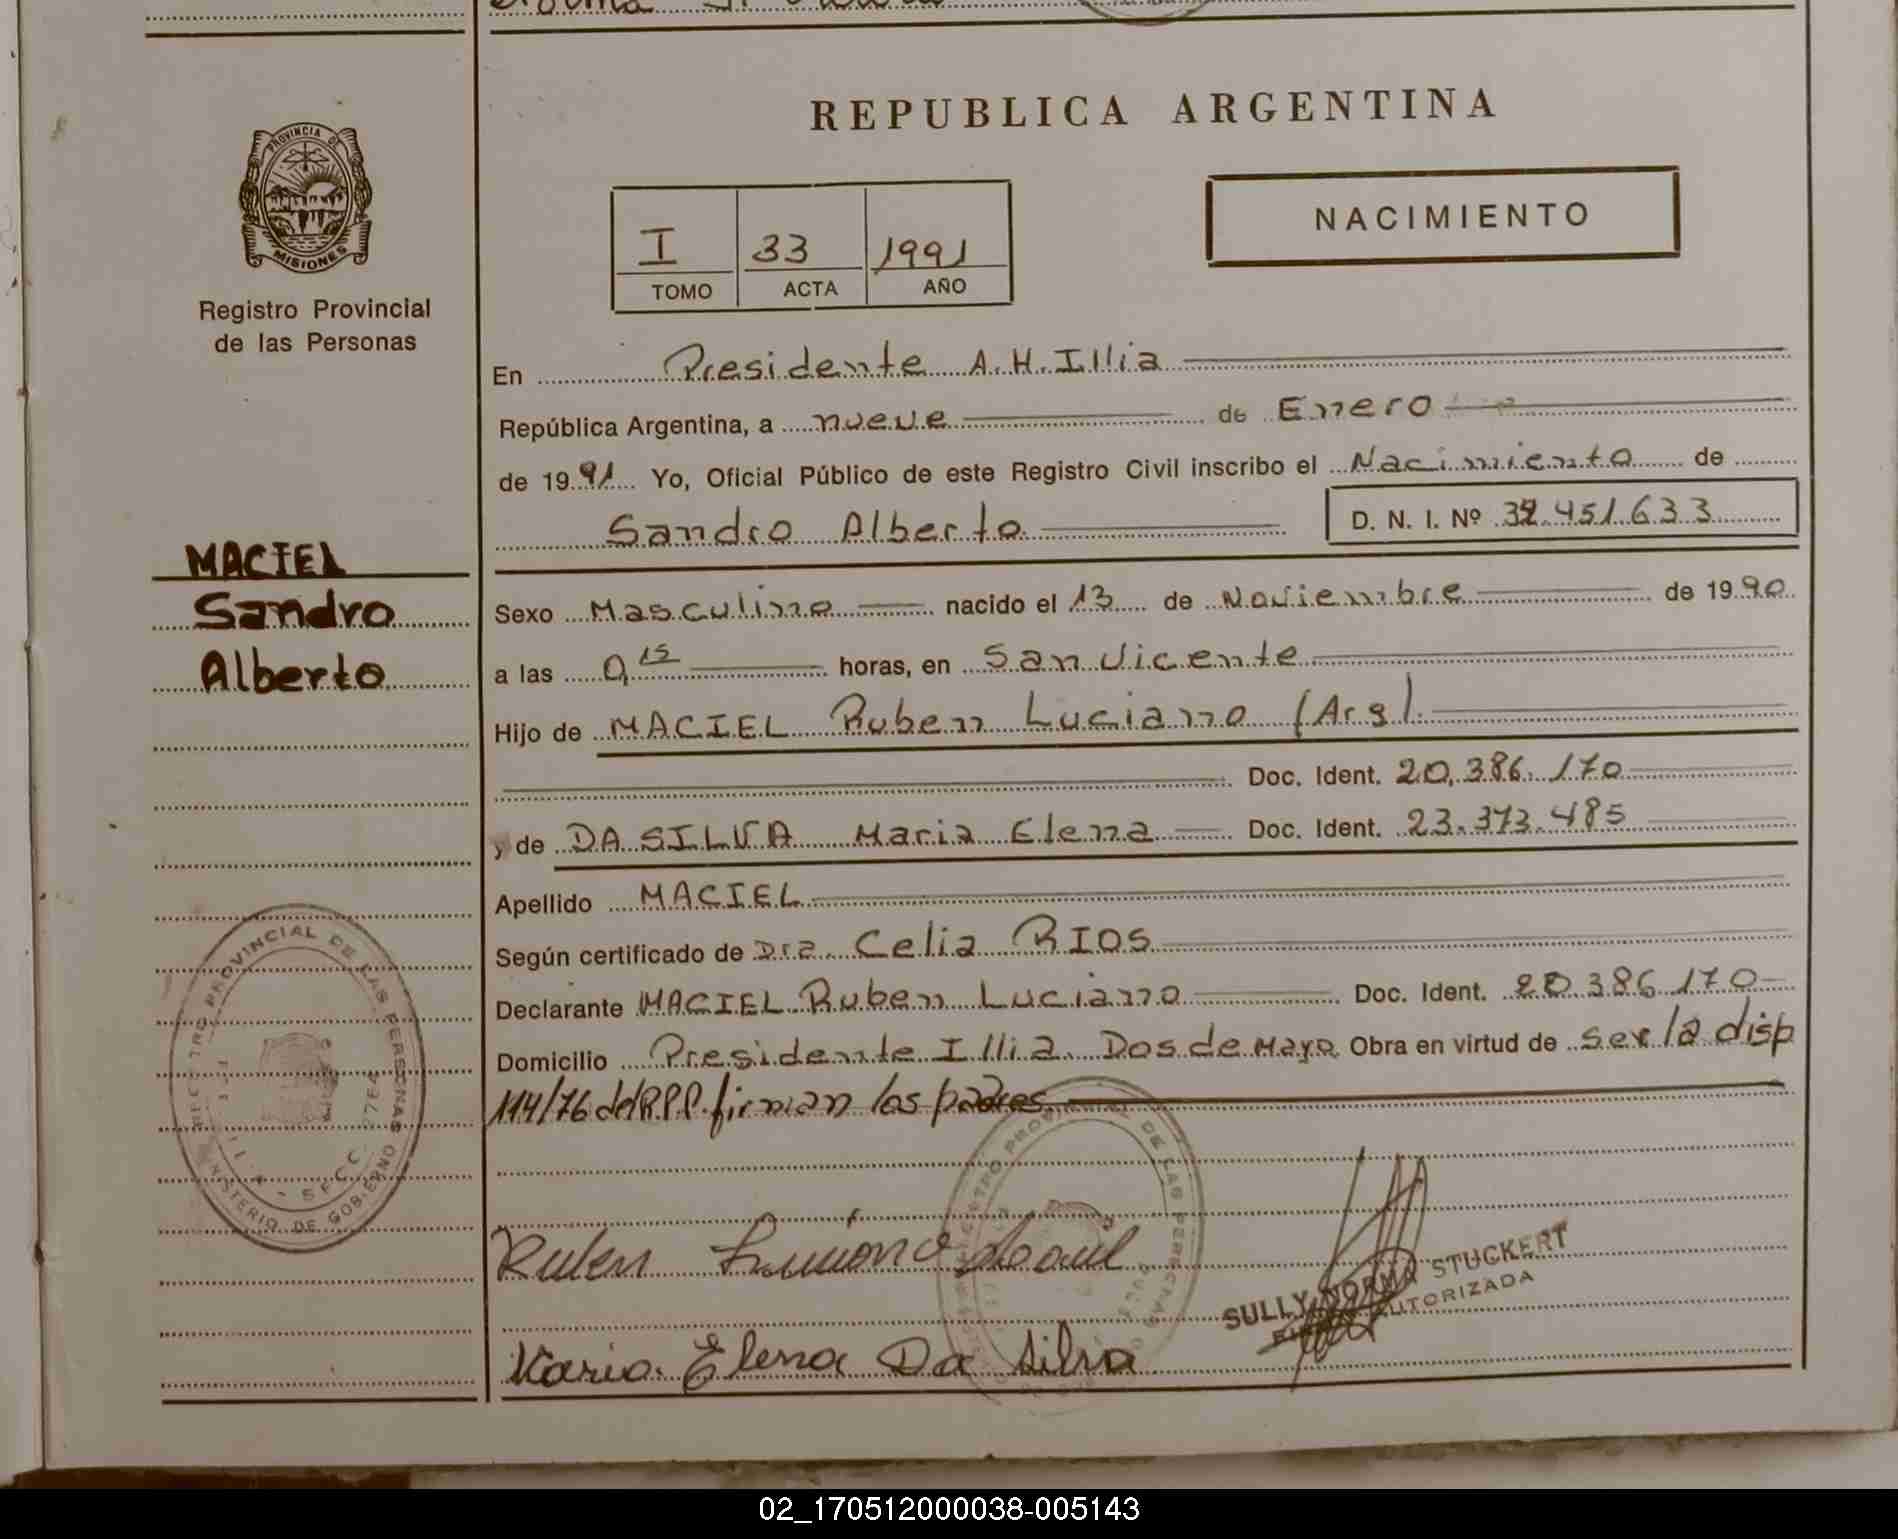 PROVINCIA DE
MISIONES
Registro Provincial
de las Personas
MACIEL
Sandro
Alberto
REGISTRO PROVINCIAL DE LAS PERSONAS
MINISTERIO DE GOBIERNO
REPUBLICA ARGENTINA
I 33 1991
TOMO ACTA AÑO
NACIMIENTO
En Presidente A.H.Illia
República Argentina, a nueve de Enero
de 1991 Yo, Oficial Público de este Registro Civil inscribo el Nacimiento de
Sandro Alberto D. N. I. Nº .451.633
Sexo Masculino nacido el 13 de Noviembre de 1990
a las 0,15 horas, en San Vicente
Hijo de MACIEL Ruben Luciano (Arg).
Doc. Ident. 20.386.170
y de DA SILVA Maria Elena Doc. Ident. 23.373.485
Apellido MACIEL
Según certificado de Dra. Celia RIOS
Declarante MACIEL Ruben Luciano Doc. Ident. 20.386.170
Domicilio Presidente Illia. Dos de Mayo Obra en virtud de ser la disp
114/76 del R.P.P. firman los padres
Ruben Luciano Maciel
SULLY NORMA STUCKERT
FIRMA AUTORIZADA
Maria Elena Da Silva
02_170512000038-005143